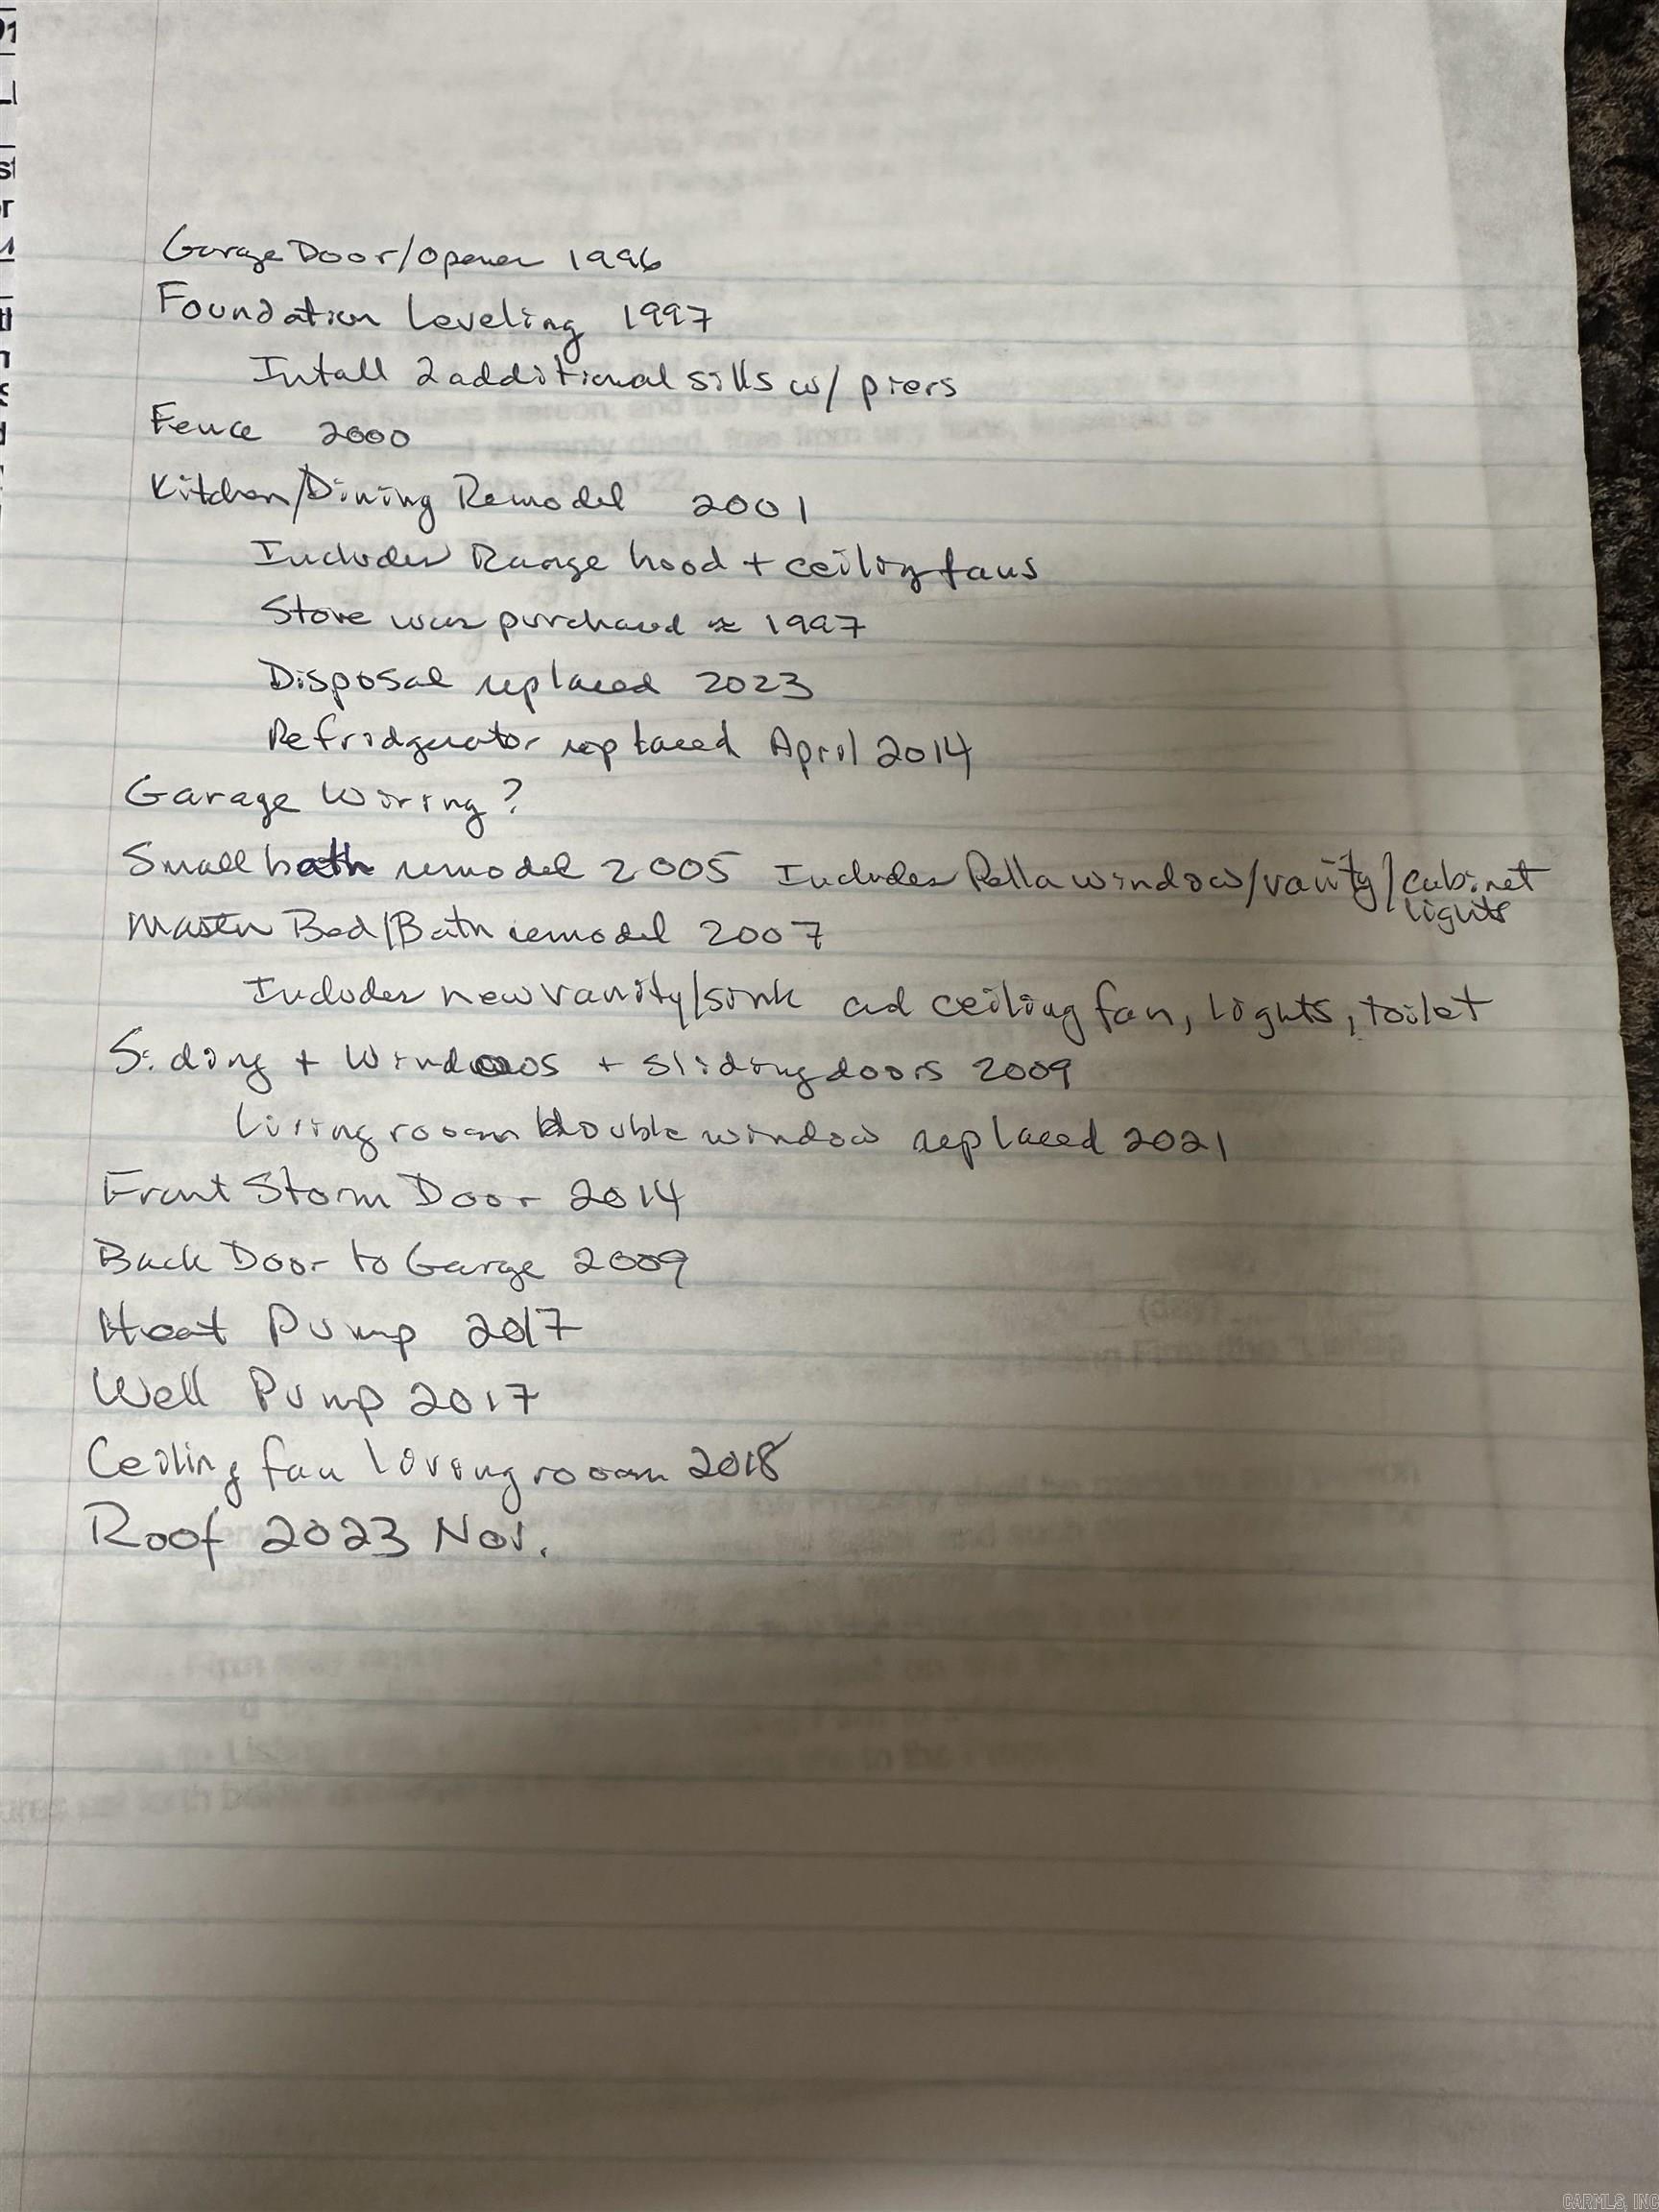 Garage Door/Opener 1996
Foundation Leveling 1997
Intall 2 additional sills w/ piers
Fence 2000
Kitchen/Dining Remodel 2001
Includes Range hood + ceiling fans
Stove was purchased ≈ 1997
Disposal replaced 2023
Refridgerator replaced April 2014
Garage Wiring?
Small bath remodel 2005 Includes Pella window/vanity/cabinet
lights
Master Bed/Bath remodel 2007
Includes new vanity/sink ad ceiling fan, lights, toilet
Siding + Windows + sliding doors 2009
Living room double window replaced 2021
Front Storm Door 2014
Back Door to Garge 2009
Heat Pump 2017
Well Pump 2017
Ceiling fan living room 2018
Roof 2023 Nov.
CARMLS, INC